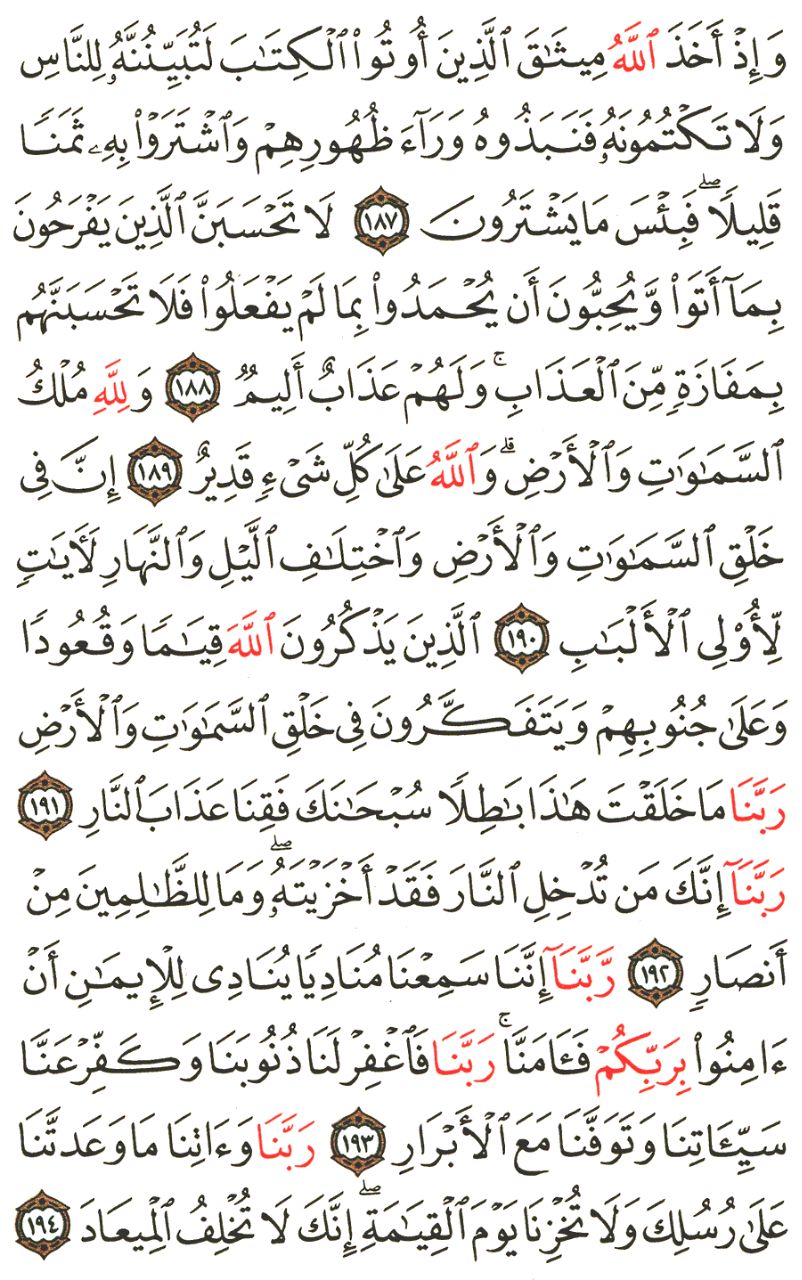 وَإِذْ أَخَذَ ٱللَّهُ مِيثَٰقَ ٱلَّذِينَ أُوتُوا۟ ٱلْكِتَٰبَ لَتُبَيِّنُنَّهُۥ لِلنَّاسِ
وَلَا تَكْتُمُونَهُۥ فَنَبَذُوهُ وَرَآءَ ظُهُورِهِمْ وَٱشْتَرَوْا۟ بِهِۦ ثَمَنًا
قَلِيلًا ۖ فَبِئْسَ مَا يَشْتَرُونَ ١٨٧ لَا تَحْسَبَنَّ ٱلَّذِينَ يَفْرَحُونَ
بِمَآ أَتَوا۟ وَّيُحِبُّونَ أَن يُحْمَدُوا۟ بِمَا لَمْ يَفْعَلُوا۟ فَلَا تَحْسَبَنَّهُم
بِمَفَازَةٍ مِّنَ ٱلْعَذَابِ ۚ وَلَهُمْ عَذَابٌ أَلِيمٌ ١٨٨ وَلِلَّهِ مُلْكُ
ٱلسَّمَٰوَٰتِ وَٱلْأَرْضِ ۗ وَٱللَّهُ عَلَىٰ كُلِّ شَىْءٍ قَدِيرٌ ١٨٩ إِنَّ فِى
خَلْقِ ٱلسَّمَٰوَٰتِ وَٱلْأَرْضِ وَٱخْتِلَٰفِ ٱلَّيْلِ وَٱلنَّهَارِ لَءَايَٰتٍ
لِّأُو۟لِى ٱلْأَلْبَٰبِ ١٩٠ ٱلَّذِينَ يَذْكُرُونَ ٱللَّهَ قِيَٰمًا وَقُعُودًا
وَعَلَىٰ جُنُوبِهِمْ وَيَتَفَكَّرُونَ فِى خَلْقِ ٱلسَّمَٰوَٰتِ وَٱلْأَرْضِ
رَبَّنَا مَا خَلَقْتَ هَٰذَا بَٰطِلًا سُبْحَٰنَكَ فَقِنَا عَذَابَ ٱلنَّارِ ١٩١
رَبَّنَآ إِنَّكَ مَن تُدْخِلِ ٱلنَّارَ فَقَدْ أَخْزَيْتَهُۥ ۖ وَمَا لِلظَّٰلِمِينَ مِنْ
أَنصَارٍ ١٩٢ رَّبَّنَآ إِنَّنَا سَمِعْنَا مُنَادِيًا يُنَادِى لِلْإِيمَٰنِ أَنْ
ءَامِنُوا۟ بِرَبِّكُمْ فَـَٔامَنَّا ۚ رَبَّنَا فَٱغْفِرْ لَنَا ذُنُوبَنَا وَكَفِّرْ عَنَّا
سَيِّـَٔاتِنَا وَتَوَفَّنَا مَعَ ٱلْأَبْرَارِ ١٩٣ رَبَّنَا وَءَاتِنَا مَا وَعَدتَّنَا
عَلَىٰ رُسُلِكَ وَلَا تُخْزِنَا يَوْمَ ٱلْقِيَٰمَةِ ۖ إِنَّكَ لَا تُخْلِفُ ٱلْمِيعَادَ ١٩٤